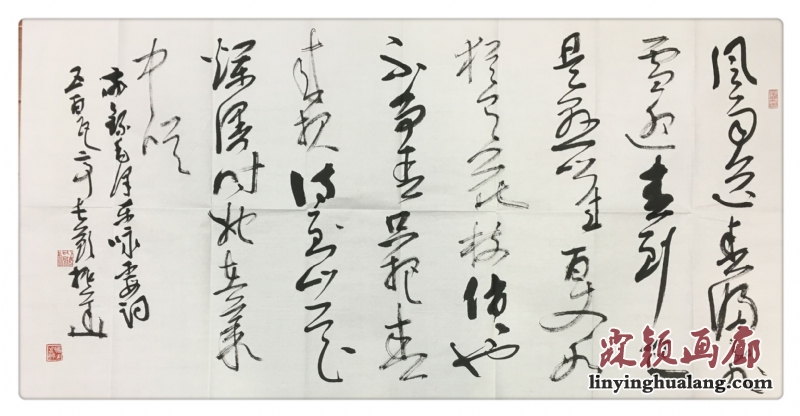 风雨送春归飞
雪迎春到已
是悬崖百丈冰
犹有花枝俏也
不争春只把春
来报待到山花
烂漫时她在丛
中笑
录毛泽东咏梅词
霖颖画廊
linyinghualang.com